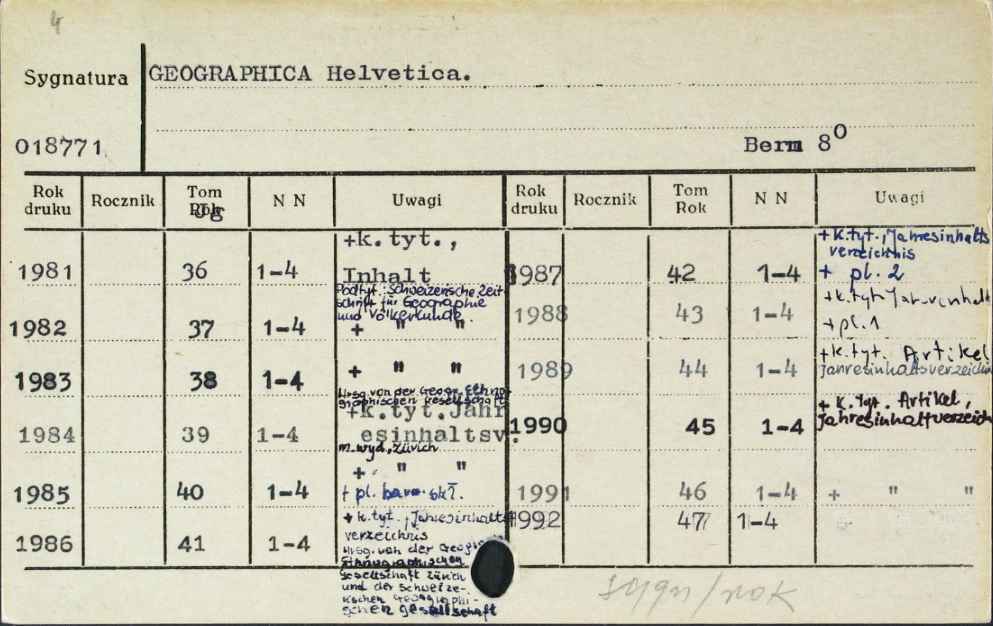 4
Sygnatura GEOGRAPHICA Helvetica.
018771 Bern 8⁰
Rok druku Rocznik Tom Rok Jg N N Uwagi Rok druku Rocznik Tom Rok N N Uwagi
1981 36 1-4 +k.tyt., Inhalt
Podtyt. Schweizerische Zeit
schrift für Geographie
und Völkerkunde.
1982 37 1-4 + " "
1983 38 1-4 + " "
Hrsg. von der Geogr. Ethno
graphischen Gesellschaft
1984 39 1-4 +k.tyt.Jahr
esinhaltsv.
m. wyd. Zürich
+ " "
1985 40 1-4 + pl.
1986 41 1-4 + k.tyt., Jahresinhalts
verzeichnis
Hrsg. von der Geogr.
Ethnographischen
Gesellschaft Zürich
und der Schweize-
rischen Geographi-
schen Gesellschaft
1987 42 1-4 + k.tyt., Jahresinhalts
verzeichnis
+ pl. 2
1988 43 1-4 + k.tyt.
+ pl. 1
1989 44 1-4 + k.tyt. Artikel
Jahresinhaltsverzeichn
1990 45 1-4 + k.tyt. Artikel,
Jahresinhaltverzeich
1991 46 1-4 + " "
1992 47 1-4
sygn/rok